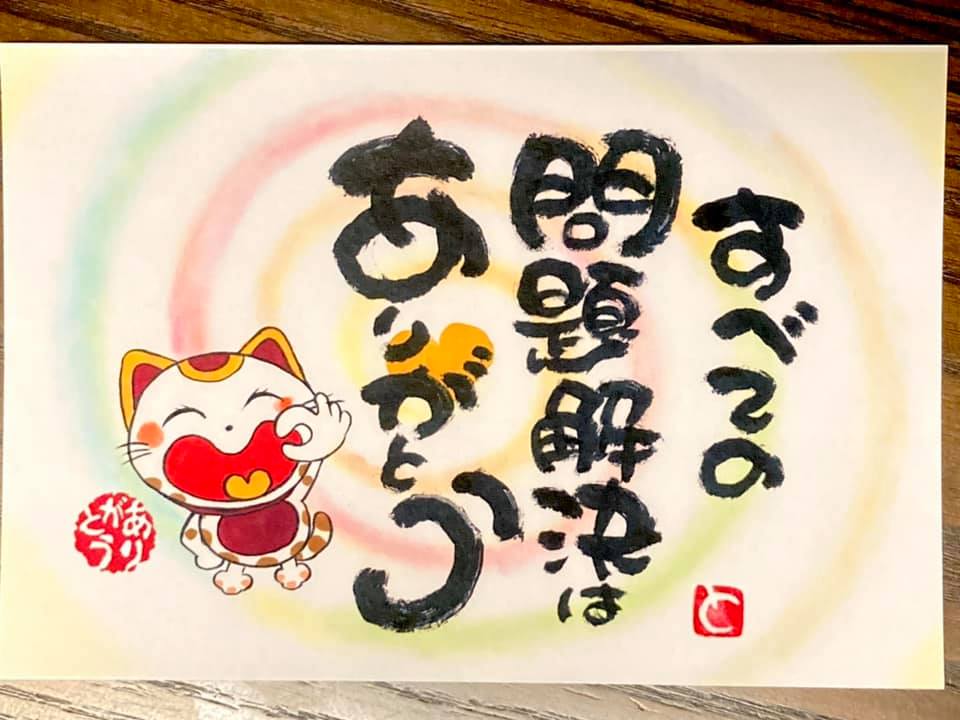 すべての
問題解決は
ありがとう
ありがとう
と